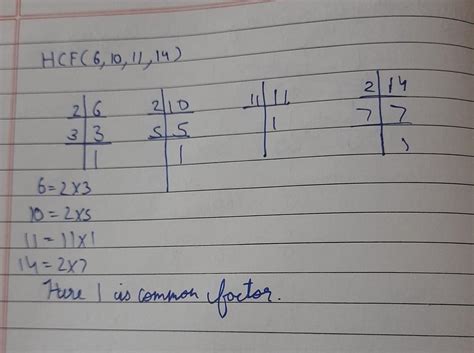 HCF(6,10,11,14)
2 6 2 10 11 11 2 14
3 3 5 5 1 7 7
1 1 1
6=2×3
10=2×5
11=11×1
14=2×7
Here 1 is common factor.